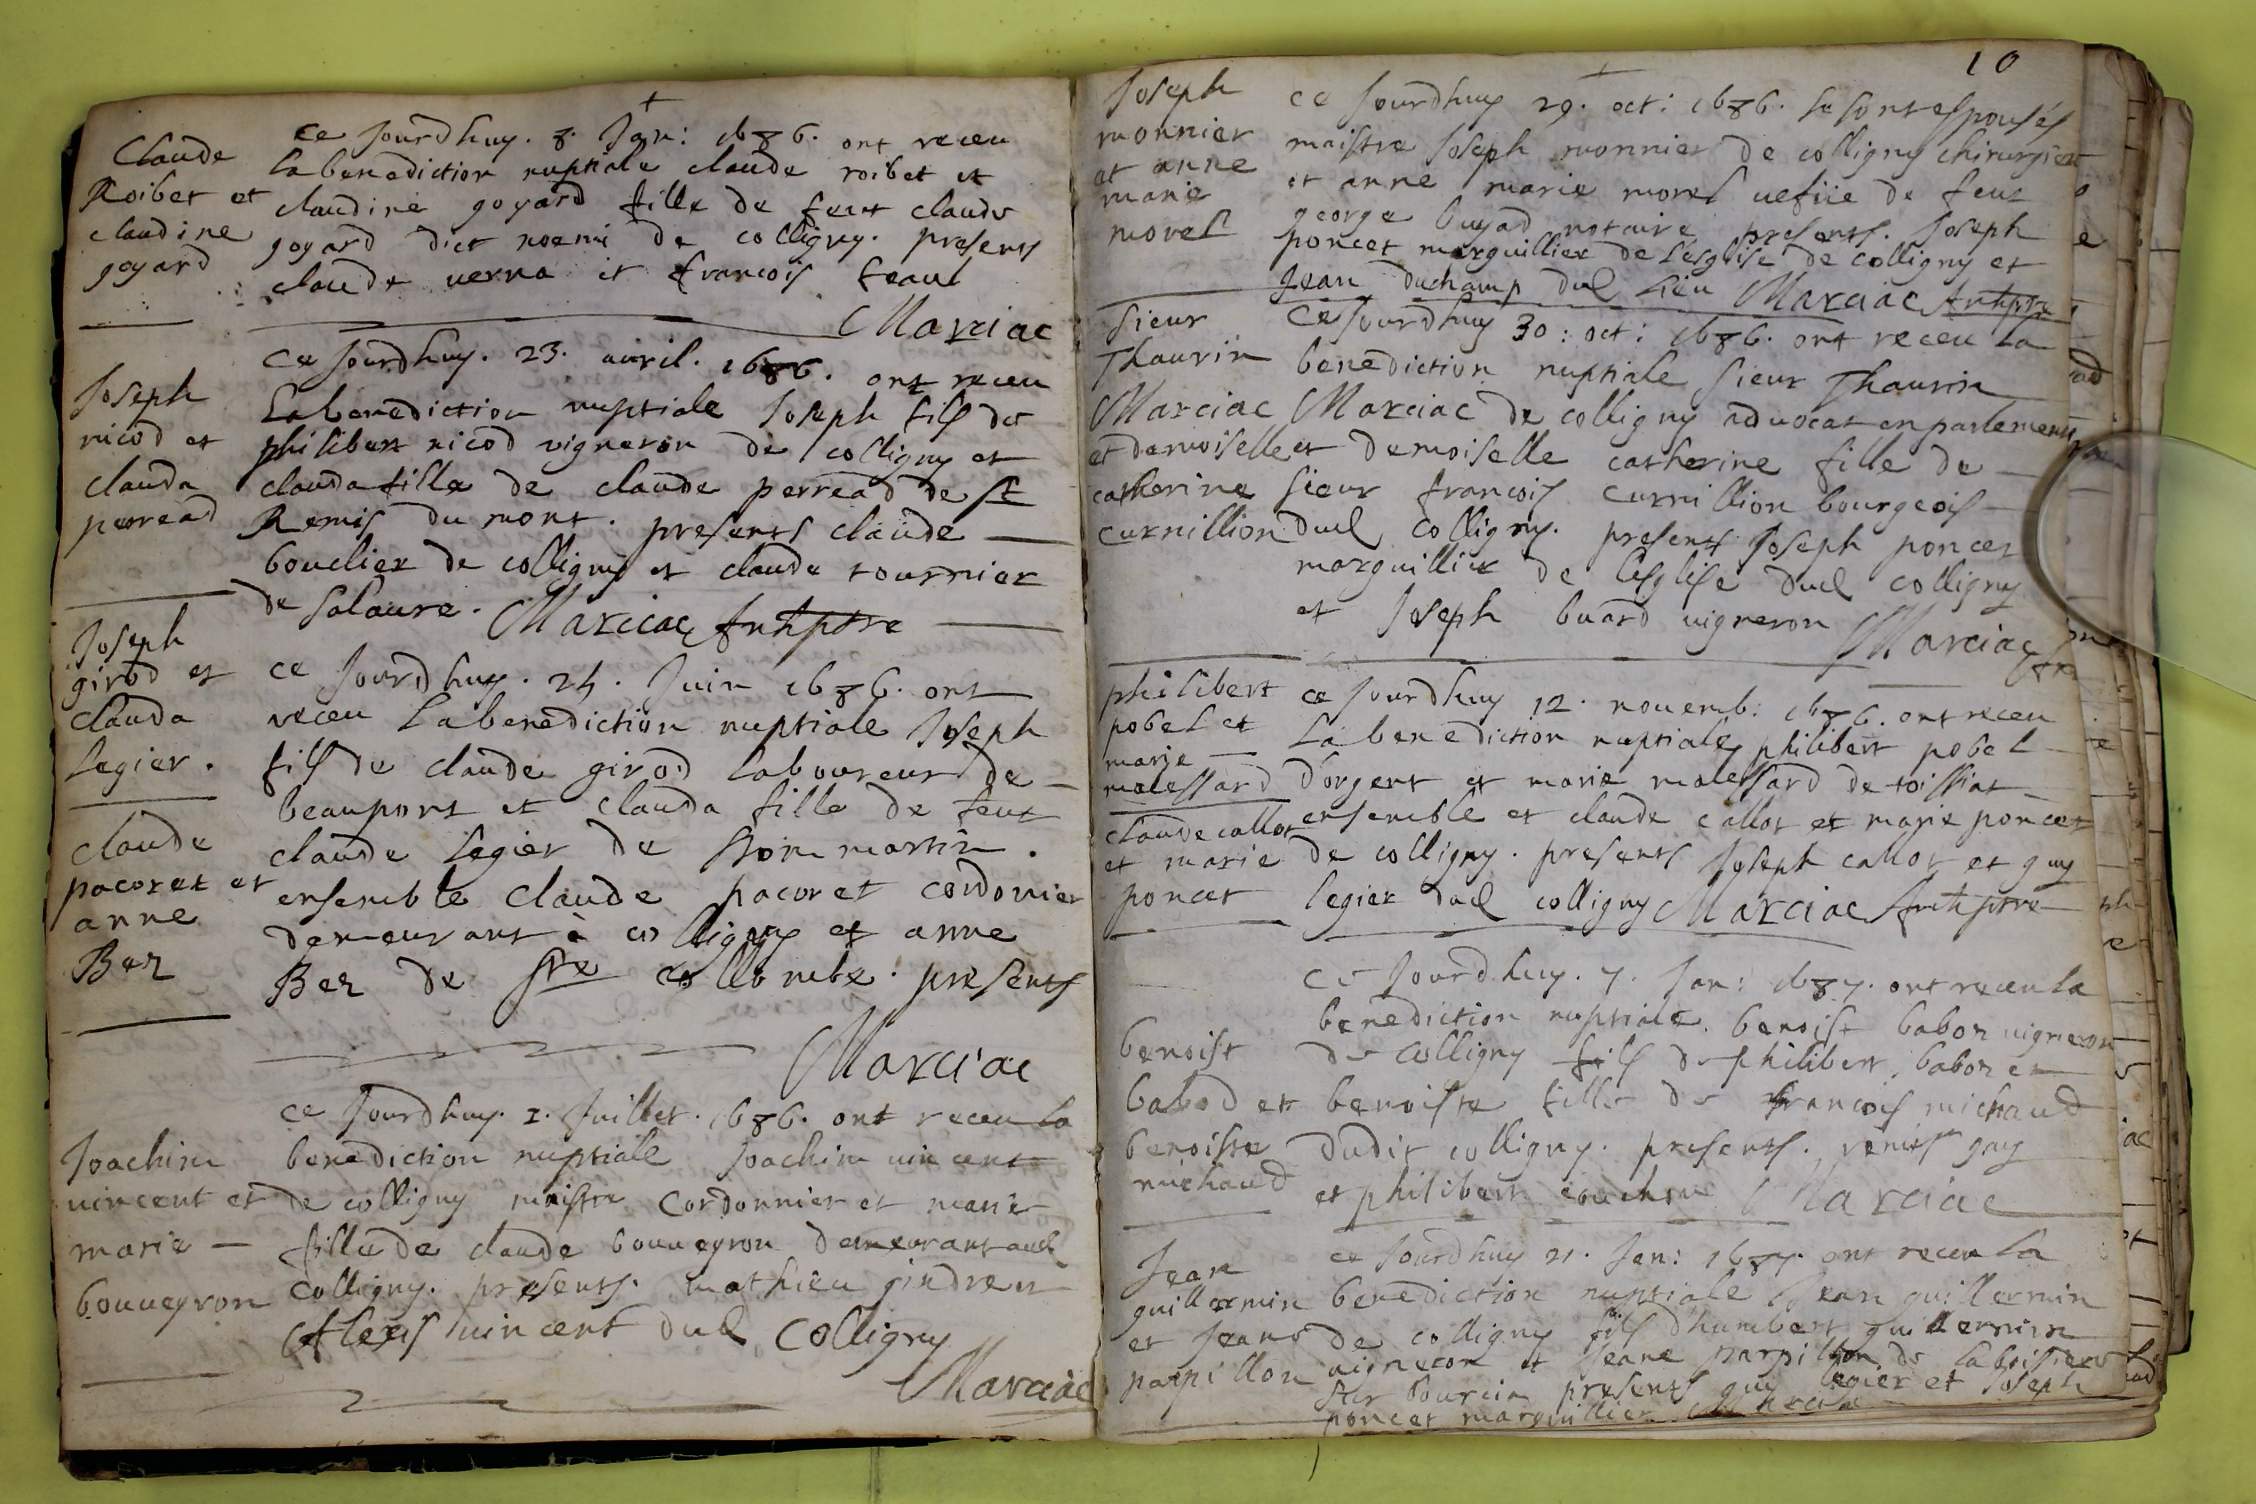 +
Claude
Roibet et
claudine
goyard
ce Jourdhuy. 8. Jan: 1686. ont receu
la benediction nuptiale claude roibet et
claudine goyard fille de feut claude
goyard dict noemi de colligny. presents
claude uerna et francois feaul
Marciac
Joseph
nicod et
clauda
perread
Ce Jourdhuy. 23. auril. 1686. ont receu
La benediction nuptiale Joseph fils de
philibert nicod vigneron de colligny et
clauda fille de claude perread de st
Remis du mont. presents claude
bouclier de colligny et claude tournier
de salaure. Marciac
Joseph
girod et
clauda
Legier.
ce Jourdhuy. 24. Juin 1686. ont
receu La benediction nuptiale Joseph
fils de claude girod Laboureur de
beauport et clauda fille de feut
claude Legier de martin.
claude
pacoret et
anne
Bez
ensemble claude pacoret cordonier
demeurant à colligny et anne
Bez de ste collombe. presents
Marciac
Joachim
uincent et
marie
bouueyron
ce Jourdhuy. 1. Juillet. 1686. ont receu la
benediction nuptiale Joachim uincent
de colligny maistre cordonnier et marie
fille de claude bouueyron demeurant aud
colligny. presents. mathieu gindre et
Alexis uincent dud colligny
Marciac
10
+
Joseph
monnier
et anne
marie
morel
ce Jourdhuy 29. oct: 1686. se sont espousés
maistre Joseph monnier de colligny chirurgien
et anne marie morel uefue de feut
george buyad notaire presents. Joseph
poncet marguillier de Lesglise de colligny et
Jean duchamp dud Lieu Marciac
Sieur
Thaurin
Marciac
et demoiselle
catherine
curnillion
Ce Jourdhuy 30: oct: 1686. ont receu La
benediction nuptiale sieur Thaurin
Marciac de colligny aduocat en parlement
et demoiselle catherine fille de
sieur francois curnillion bourgeois
dud colligny. presents Joseph poncet
marguillier de Lesglise dud colligny
et Joseph buard uigneron
Marciac
philibert
pobel et
marie
malessard
ce Jourdhuy 12. nouemb: 1686. ont receu
La benediction nuptiale philibert pobel
d'orgent et marie malessard de toissiat
claude callot
et marie
poncet
ensemble et claude callot et marie poncet
de colligny. presents Joseph callot et guy
legier dud colligny Marciac
benoist
babod et
benoiste
michaud
ce Jourdhuy. 7. Jan: 1687. ont receu la
benediction nuptiale. benoist baboz uigneron
de colligny fils de philibert baboz et
benoiste fille de francois michaud
dudit colligny. presents. remis gay
et philibert Marciac
Jean
guillermin
et Jeane
parpillon
ce Jourdhuy 21. Jan: 1687. ont receu la
benediction nuptiale Jean guillermin
de colligny fils d'humbert guillermin
uigneron et Jeane parpillon de
presents guy legier et Joseph
poncet marguillier Marciac